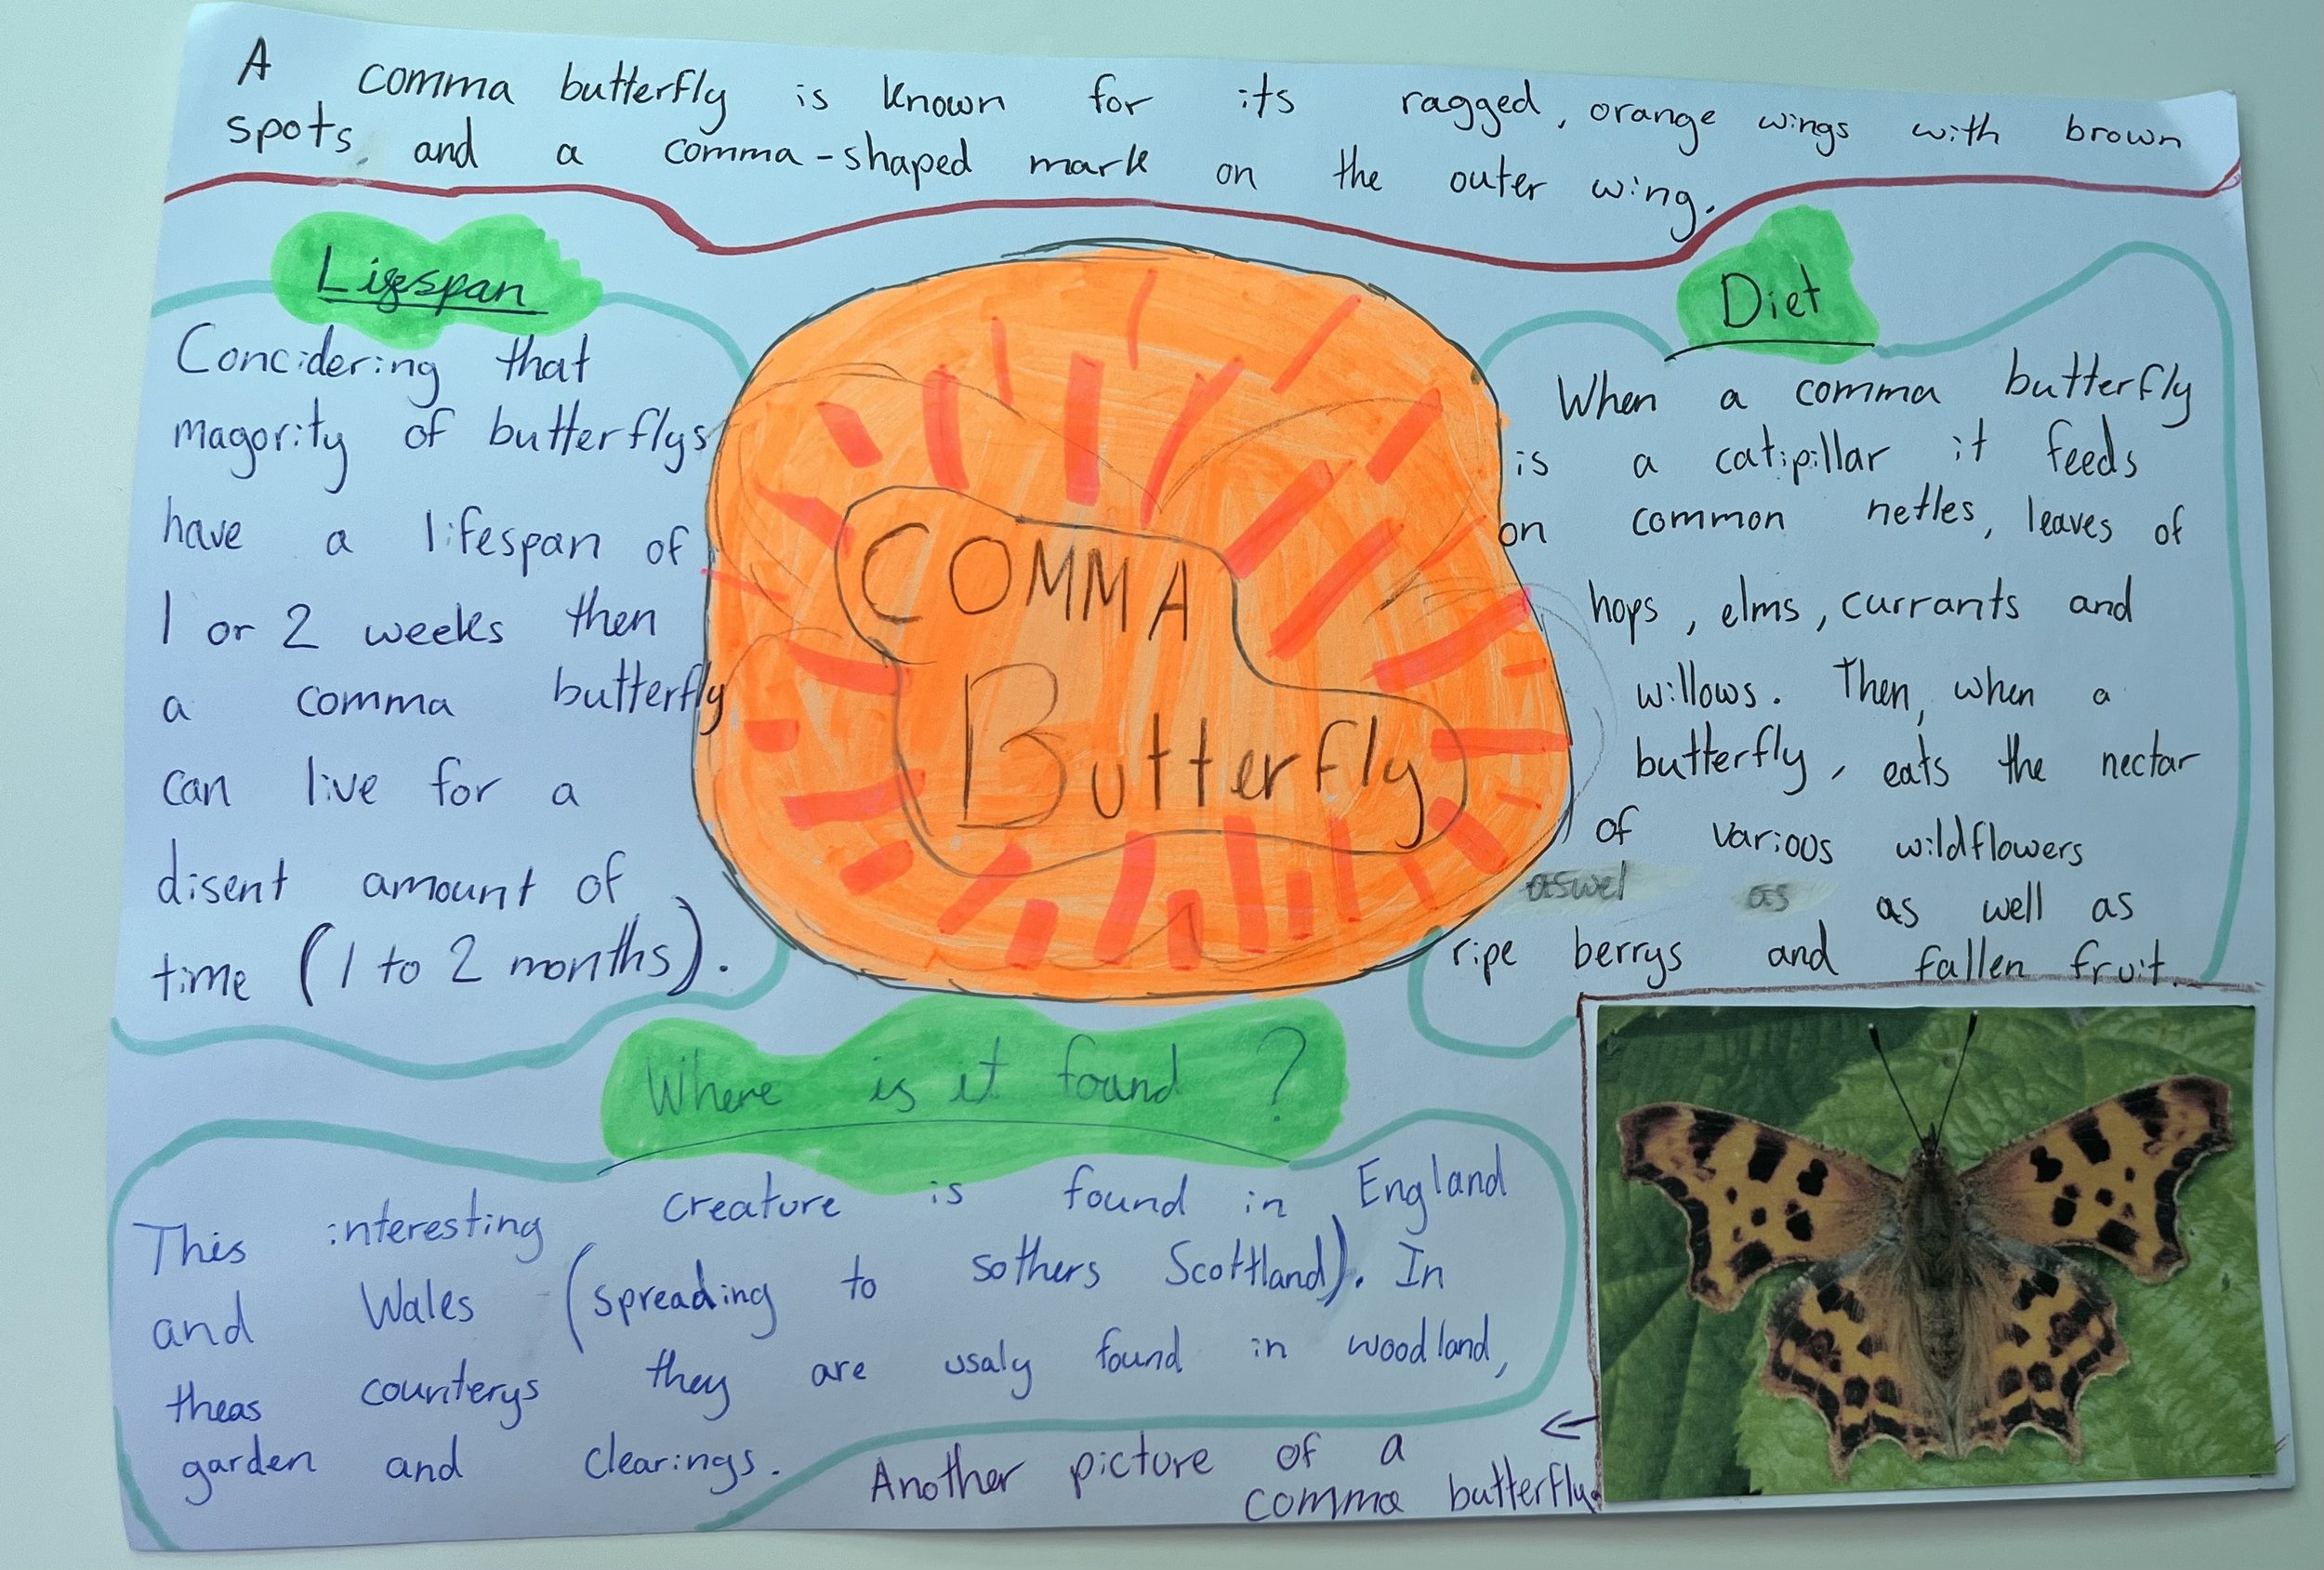 A comma butterfly is known for its ragged, orange wings with brown
spots, and a comma-shaped mark on the outer wing.
Lifespan
Concidering that
magority of butterflys
have a lifespan of
1 or 2 weeks then
a comma butterfly
can live for a
disent amount of
time (1 to 2 months).
COMMA
Butterfly
Diet
When a comma butterfly
is a catipillar it feeds
on common netles, leaves of
hops, elms, currants and
willows. Then, when a
butterfly, eats the nectar
of varioos wildflowers
aswel as as well as
ripe berrys and fallen fruit.
Where is it found?
This interesting creature is found in England
and Wales (spreading to sothers Scottland). In
theas counterys they are usaly found in woodland,
garden and clearings.
Another picture of a
comma butterfly.